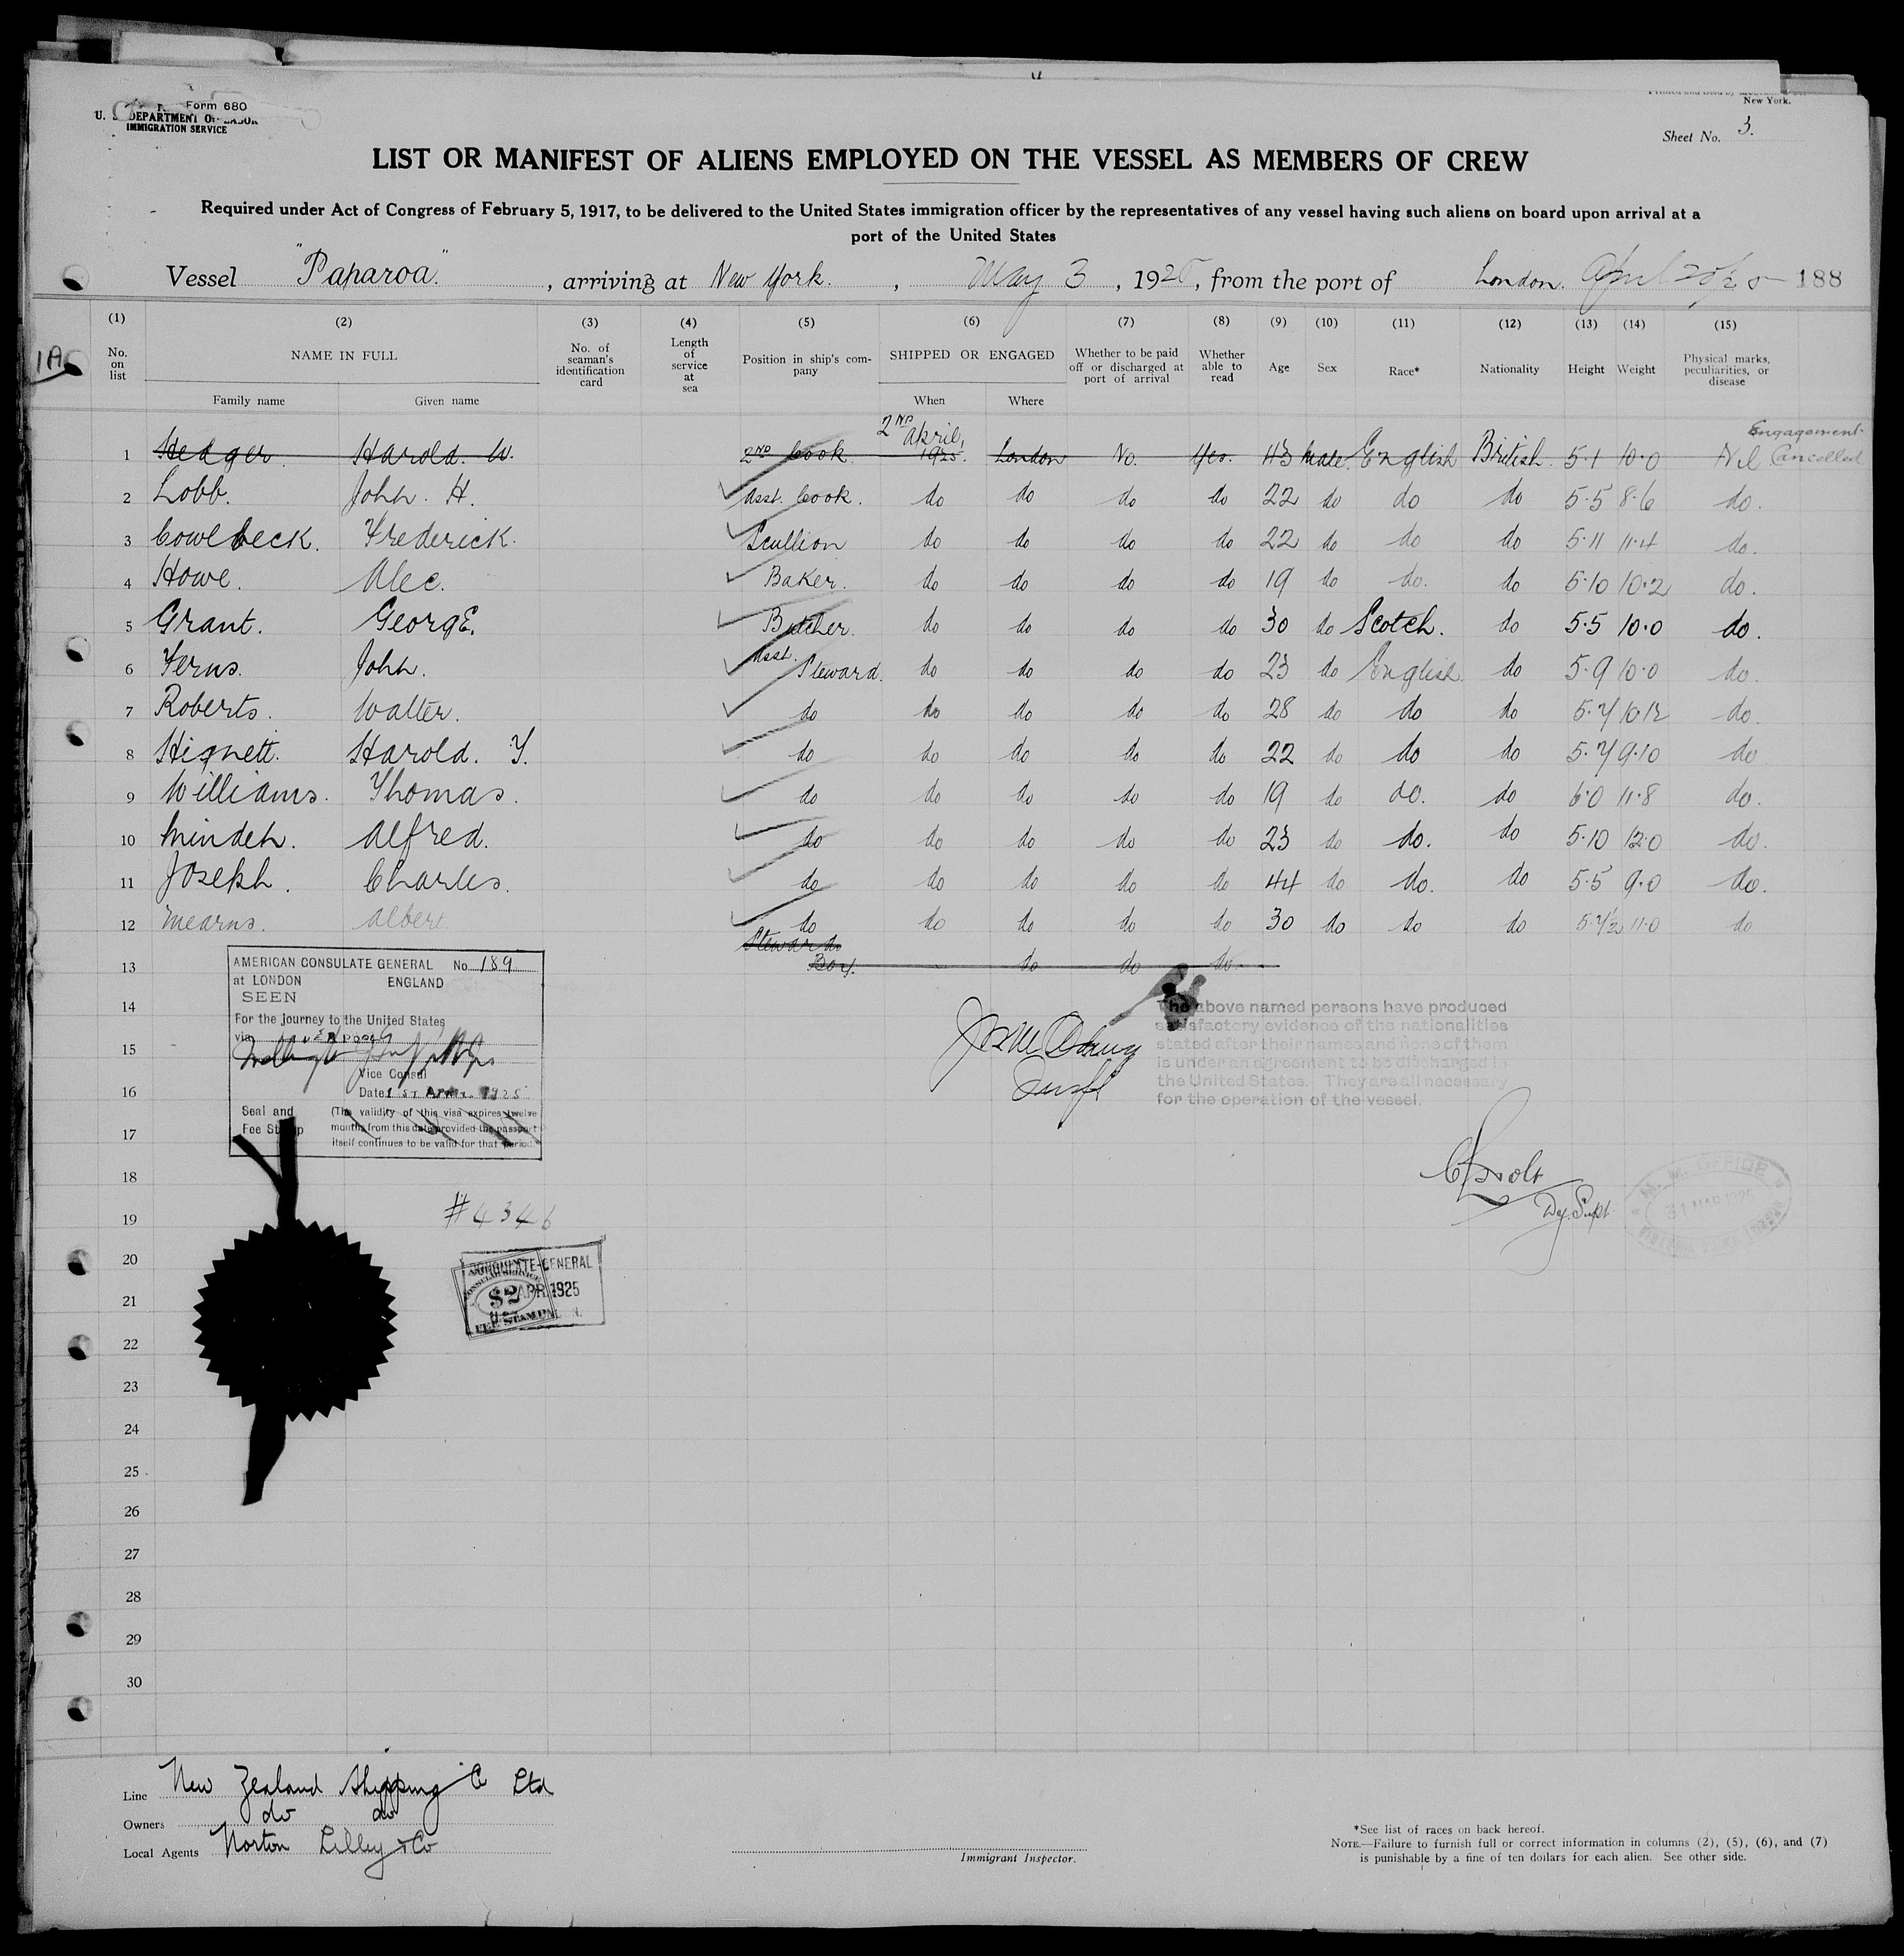 Form 680
U. S. DEPARTMENT OF LABOR
IMMIGRATION SERVICE
New York.
Sheet No. 3.
LIST OR MANIFEST OF ALIENS EMPLOYED ON THE VESSEL AS MEMBERS OF CREW
Required under Act of Congress of February 5, 1917, to be delivered to the United States immigration officer by the representatives of any vessel having such aliens on board upon arrival at a
port of the United States
Vessel "Paparoa", arriving at New York, May 3, 1925, from the port of London. April 20/25 188
1A
(1) (2) (3) (4) (5) (6) (7) (8) (9) (10) (11) (12) (13) (14) (15)
No. on list
NAME IN FULL
Family name Given name
No. of seaman's identification card
Length of service at sea
Position in ship's company
SHIPPED OR ENGAGED
When Where
Whether to be paid off or discharged at port of arrival
Whether able to read
Age Sex Race* Nationality Height Weight
Physical marks, peculiarities, or disease
1 Hedger. Harold. W. 2ND Cook 2ND April, 1925. London No. Yes. 43 Male. English British. 5·1 10·0 Nil Engagement Cancelled
2 Lobb. John. H. Asst. Cook. do do do do 22 do do do 5·5 8·6 do.
3 Cowlbeck. Frederick. Scullion do do do do 22 do do do 5·11 11·4 do.
4 Howe. Alec. Baker. do do do do 19 do do. do 5·10 10·2 do.
5 Grant. George. Butcher. do do do do 30 do Scotch. do 5·5 10·0 do.
6 Ferns. John. Asst. Steward. do do do do 23 do English. do 5·9 10·0 do.
7 Roberts. Walter. do do do do do 28 do do do 5·7 10·12 do.
8 Hignett. Harold. F. do do do do do 22 do do do 5·7 9·10 do
9 Williams. Thomas. do do do do do 19 do do. do 6·0 11·8 do.
10 Minden. Alfred. do do do do do 23 do do. do 5·10 12·0 do.
11 Joseph. Charles. do do do do do 44 do do. do 5·5 9·0 do.
12 Mearns. Albert. do do do do do 30 do do do 5·7½ 11·0 do
13 Stewards Boy. do do do
14
15
16
17
18
19
20
21
22
23
24
25
26
27
28
29
30
AMERICAN CONSULATE GENERAL No. 189
at LONDON ENGLAND
SEEN
For the journey to the United States
via
Vice Consul
Date 1ST APR. 1925
Seal and Fee Stamp
(The validity of this visa expires twelve
months from this date provided the passport
itself continues to be valid for that period.
The above named persons have produced
satisfactory evidence of the nationalities
stated after their names and none of them
is under an agreement to be discharged in
the United States. They are all necessary
for the operation of the vessel.
Dy. Supt.
M. M. OFFICE
31 MAR 1925
#4346
CONSULATE-GENERAL
$2 APR 1925
FEE STAMP
Line New Zealand Shipping Co Ltd
Owners do do
Local Agents Norton Lilley & Co
Immigrant Inspector.
*See list of races on back hereof.
NOTE.—Failure to furnish full or correct information in columns (2), (5), (6), and (7)
is punishable by a fine of ten dollars for each alien. See other side.